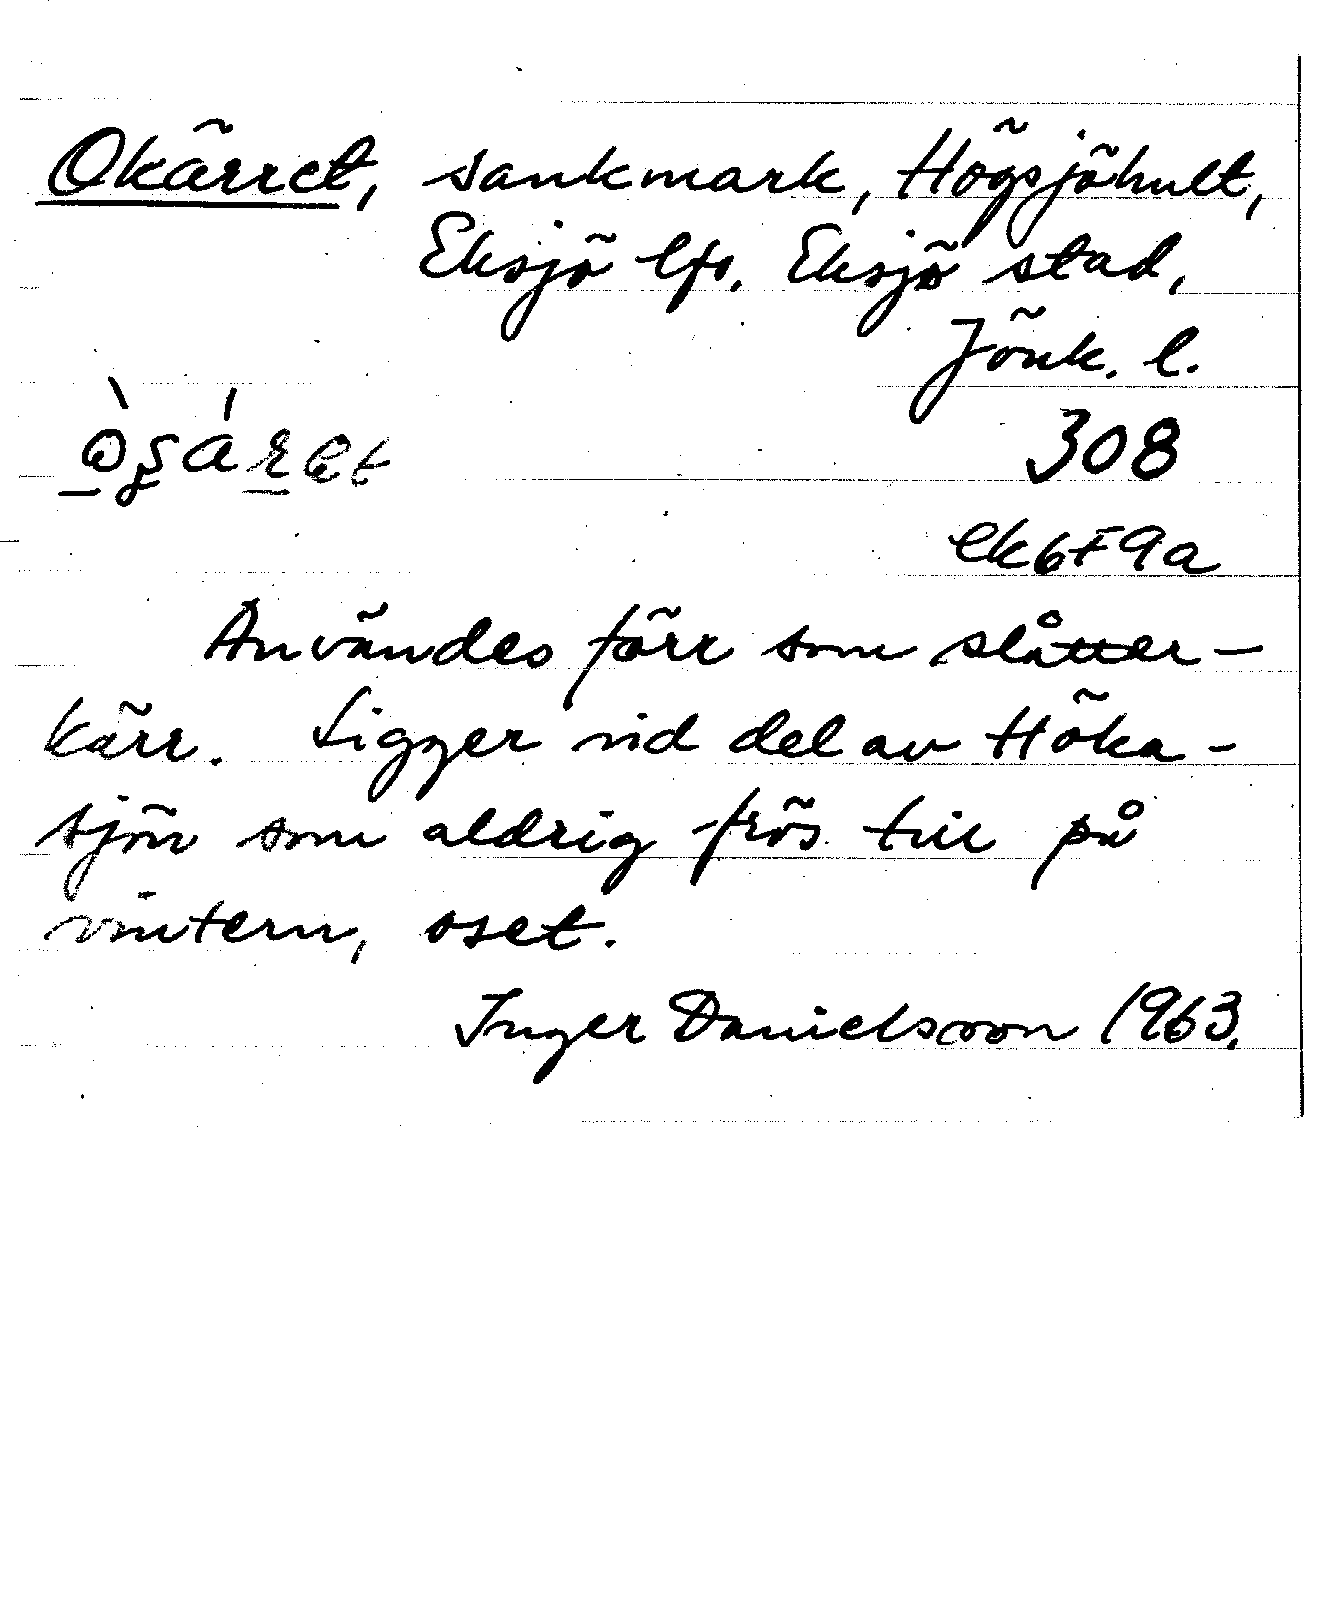 Okärret, sankmark, Högsjöhult,
Eksjö lfs. Eksjö stad,
Jönk. l.
308
ek6F9a
Användes förr som slåtter-
kärr. Ligger vid del av Höka-
sjön som aldrig frös till på
vintern, oset.
Inger Danielsson 1963.